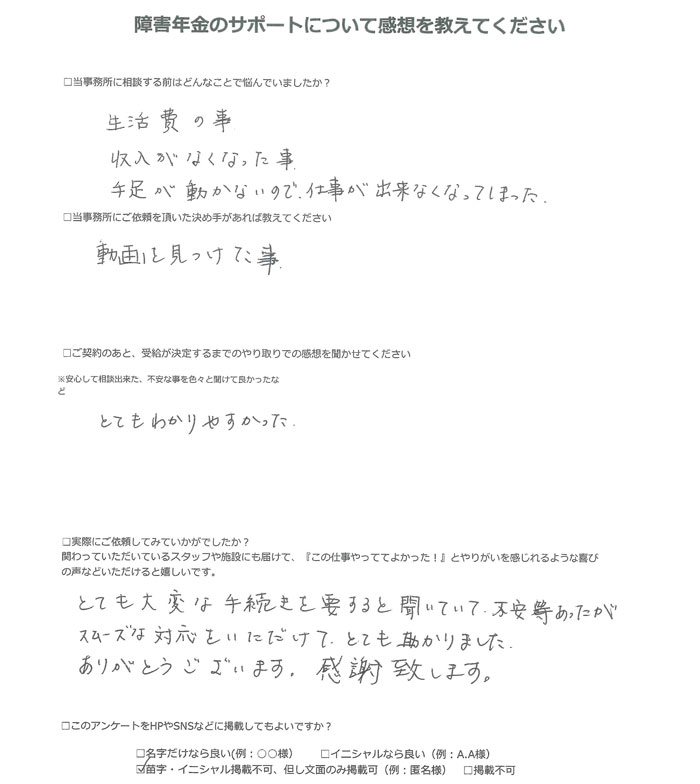 障害年金のサポートについて感想を教えてください
☐当事務所に相談する前はどんなことで悩んでいましたか？
生活費の事.
収入がなくなった事.
手足が動かないので、仕事が出来なくなってしまった.
☐当事務所にご依頼を頂いた決め手があれば教えてください
動画を見つけた事.
☐ご契約のあと、受給が決定するまでのやり取りでの感想を聞かせてください
※安心して相談出来た、不安な事を色々と聞けて良かったな
ど
とてもわかりやすかった.
☐実際にご依頼してみていかがでしたか？
関わっていただいているスタッフや施設にも届けて、『この仕事やっててよかった！』とやりがいを感じれるような喜び
の声などいただけると嬉しいです。
とても大変な手続きを要すると聞いていて、不安等あったが
スムーズな対応をいただけて、とても助かりました.
ありがとうございます。感謝致します。
☐このアンケートをHPやSNSなどに掲載してもよいですか？
☐名字だけなら良い(例：○○様） ☐イニシャルなら良い（例：A.A様）
☑苗字・イニシャル掲載不可、但し文面のみ掲載可（例：匿名様） ☐掲載不可